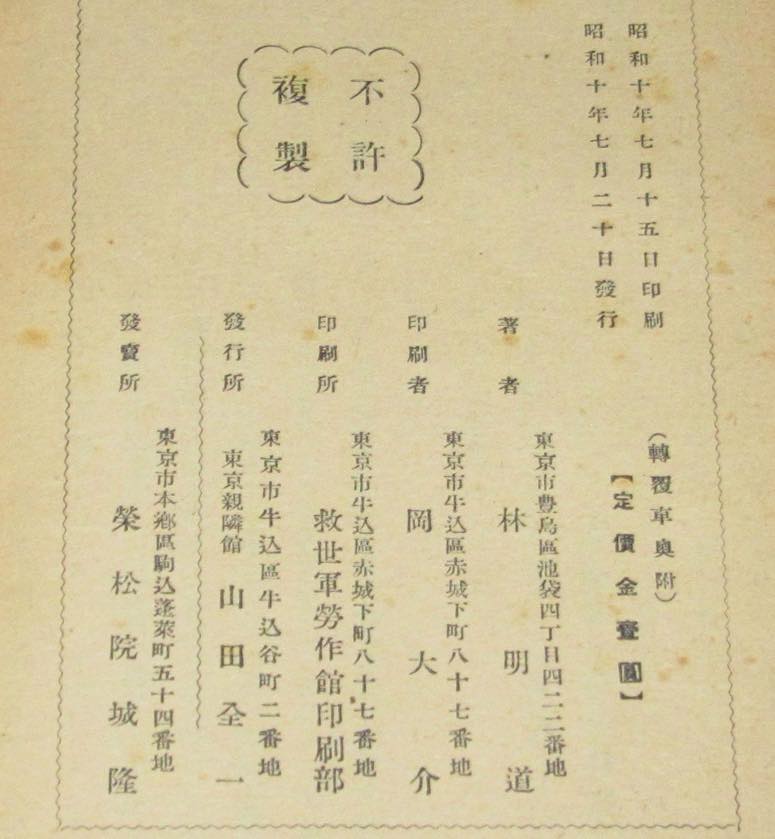 昭和十年七月十五日印刷
昭和十年七月二十日發行
不許
複製
(轉覆車奥附)
【定價金壹圓】
東京市豊島區池袋四丁目四二二番地
著者 林明道
東京市牛込區赤城下町八十七番地
印刷者 岡大介
東京市牛込區赤城下町八十七番地
印刷所 救世軍勞作館印刷部
東京市牛込區牛込谷町二番地
發行所 東京親隣館 山田全一
東京市本鄉區駒込蓬萊町五十四番地
發賣所 榮松院城隆